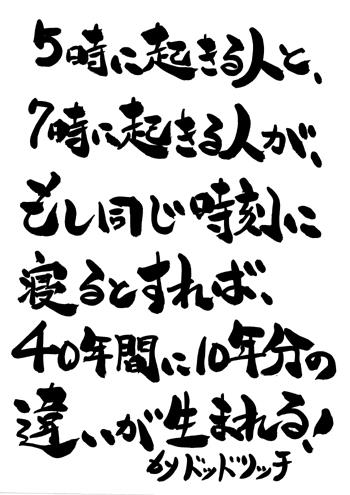 5時に起きる人と、
7時に起きる人が、
もし同じ時刻に
寝るとすれば、
40年間に10年分の
違いが生まれる!
byドッドリッチ